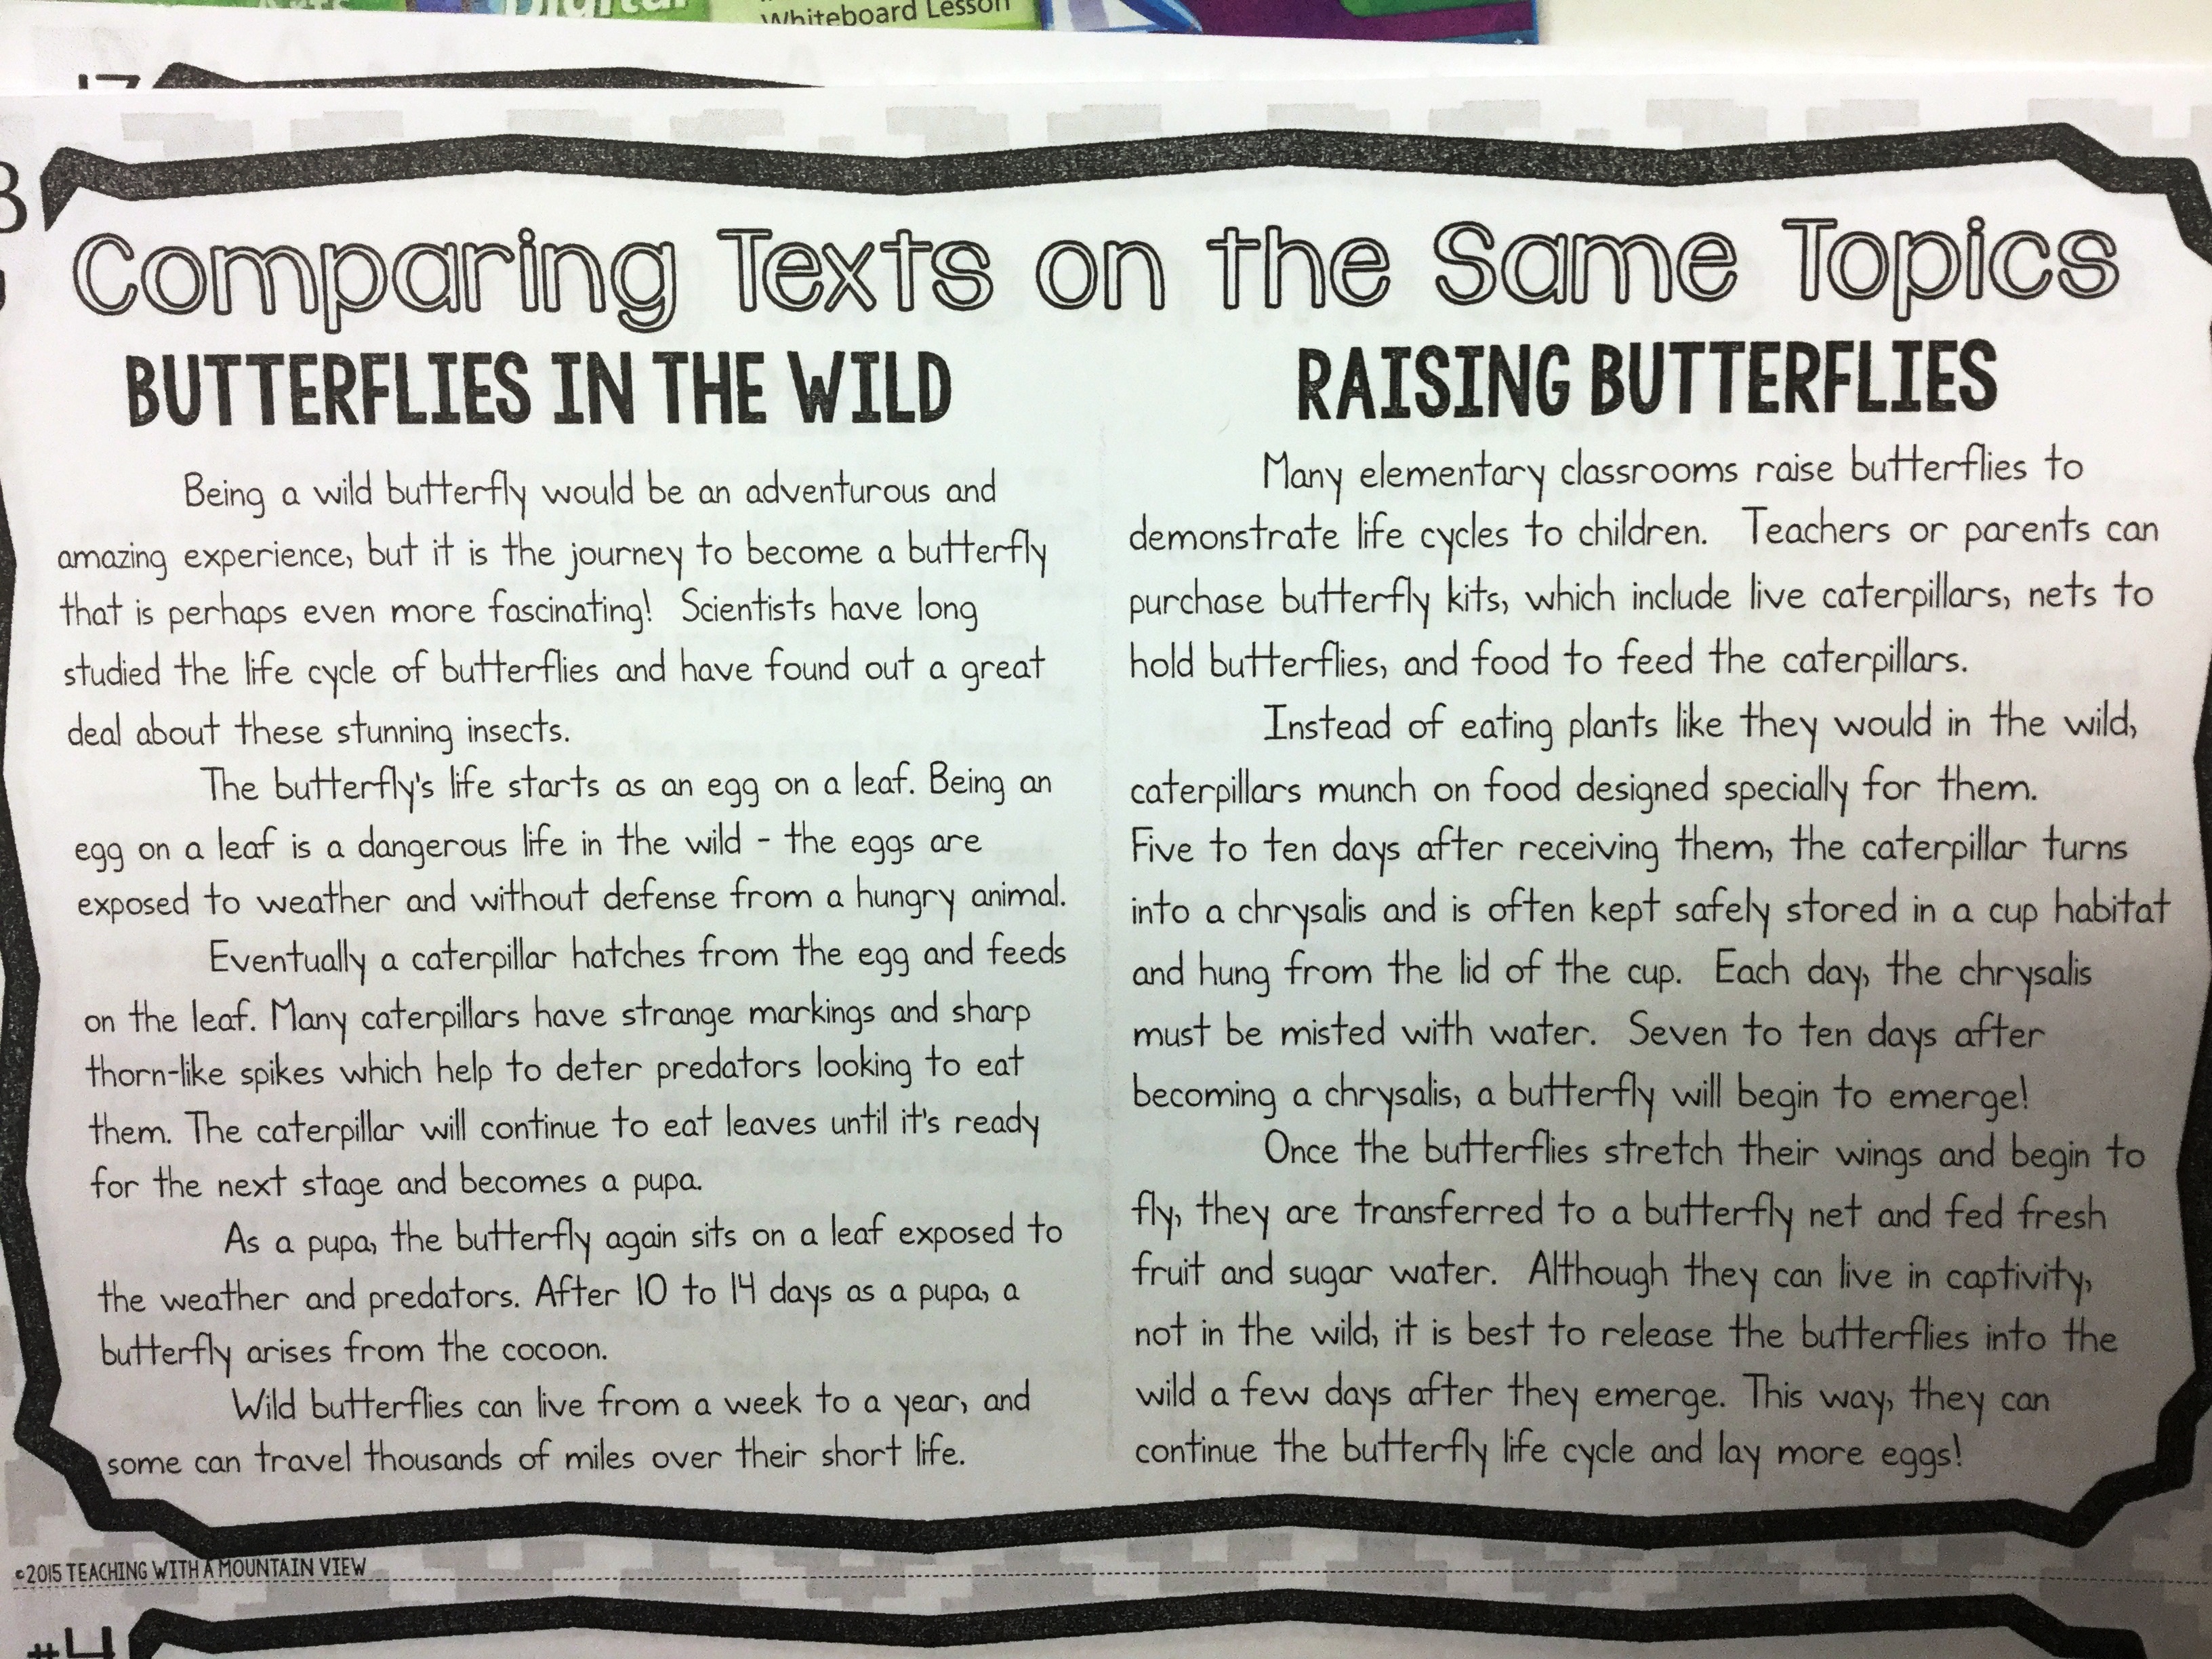 Whiteboard Lesson
17
Comparing Texts on the Same Topics
BUTTERFLIES IN THE WILD
Being a wild butterfly would be an adventurous and
amazing experience, but it is the journey to become a butterfly
that is perhaps even more fascinating! Scientists have long
studied the life cycle of butterflies and have found out a great
deal about these stunning insects.
The butterfly's life starts as an egg on a leaf. Being an
egg on a leaf is a dangerous life in the wild - the eggs are
exposed to weather and without defense from a hungry animal.
Eventually a caterpillar hatches from the egg and feeds
on the leaf. Many caterpillars have strange markings and sharp
thorn-like spikes which help to deter predators looking to eat
them. The caterpillar will continue to eat leaves until it's ready
for the next stage and becomes a pupa.
As a pupa, the butterfly again sits on a leaf exposed to
the weather and predators. After 10 to 14 days as a pupa, a
butterfly arises from the cocoon.
Wild butterflies can live from a week to a year, and
some can travel thousands of miles over their short life.
RAISING BUTTERFLIES
Many elementary classrooms raise butterflies to
demonstrate life cycles to children. Teachers or parents can
purchase butterfly kits, which include live caterpillars, nets to
hold butterflies, and food to feed the caterpillars.
Instead of eating plants like they would in the wild,
caterpillars munch on food designed specially for them.
Five to ten days after receiving them, the caterpillar turns
into a chrysalis and is often kept safely stored in a cup habitat
and hung from the lid of the cup. Each day, the chrysalis
must be misted with water. Seven to ten days after
becoming a chrysalis, a butterfly will begin to emerge!
Once the butterflies stretch their wings and begin to
fly, they are transferred to a butterfly net and fed fresh
fruit and sugar water. Although they can live in captivity,
not in the wild, it is best to release the butterflies into the
wild a few days after they emerge. This way, they can
continue the butterfly life cycle and lay more eggs!
©2015 TEACHING WITH A MOUNTAIN VIEW
#4